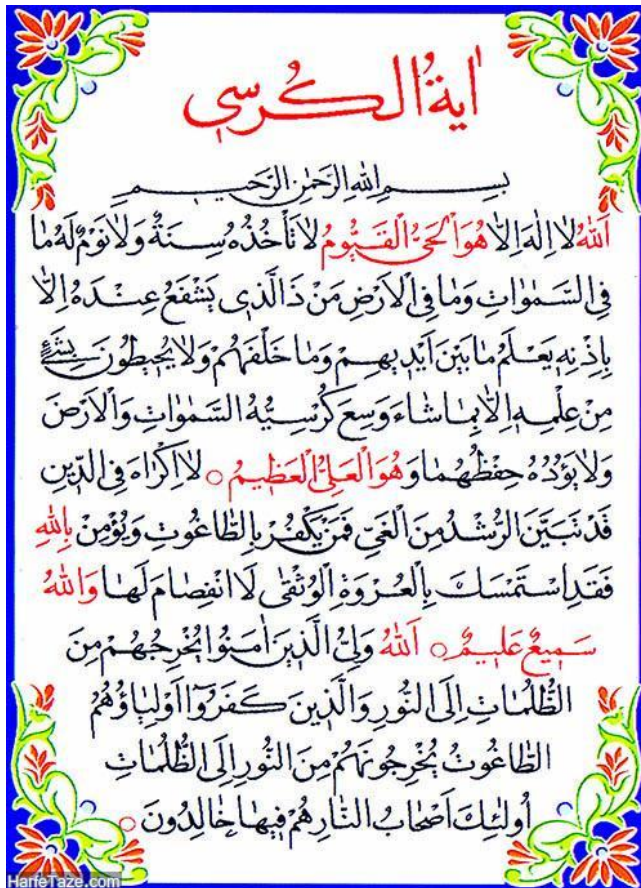 اٰیةُ الْكُرسی
بِسْمِ اللّٰهِ الرَّحْمٰنِ الرَّحیمِ
اَللّٰهُ لَا اِلٰهَ اِلاّٰ هُوَ الْحَیُّ الْقَیُّومُ لاٰ تَأْخُذُهُ سِنَةٌ وَلاٰ نَوْمٌ لَهُ مٰا
فِی السَّمٰوٰاتِ وَمٰا فِی الْاَرْضِ مَنْ ذَا الَّذی یَشْفَعُ عِنْدَهُ اِلاّٰ
بِاِذْنِهِ یَعْلَمُ مٰا بَیْنَ اَیْدیهِمْ وَمٰا خَلْفَهُمْ وَلاٰ یُحیطُونَ بِشَیْءٍ
مِنْ عِلْمِهِ اِلاّٰ بِمٰا شٰاءَ وَسِعَ كُرْسِیُّهُ السَّمٰوٰاتِ وَالْاَرْضَ
وَلاٰ یَؤُدُهُ حِفْظُهُمٰا وَهُوَ الْعَلِیُّ الْعَظیمُ ○ لاٰ اِكْرٰاهَ فِی الدّینِ
قَدْ تَبَیَّنَ الرُّشْدُ مِنَ الْغَیِّ فَمَنْ یَكْفُرْ بِالطّٰاغُوتِ وَیُؤْمِنْ بِاللّٰهِ
فَقَدِ اسْتَمْسَكَ بِالْعُرْوَةِ الْوُثْقٰی لَا انْفِصٰامَ لَهٰا وَاللّٰهُ
سَمیعٌ عَلیمٌ ○ اَللّٰهُ وَلِیُّ الَّذینَ اٰمَنُوا یُخْرِجُهُمْ مِنَ
الظُّلُمٰاتِ اِلَی النُّورِ وَالَّذینَ كَفَرُوا اَوْلِیٰاؤُهُمُ
الطّٰاغُوتُ یُخْرِجُونَهُمْ مِنَ النُّورِ اِلَی الظُّلُمٰاتِ
اُولٰئِكَ اَصْحٰابُ النّٰارِ هُمْ فیهٰا خٰالِدُونَ ○
HarfeTaze.com